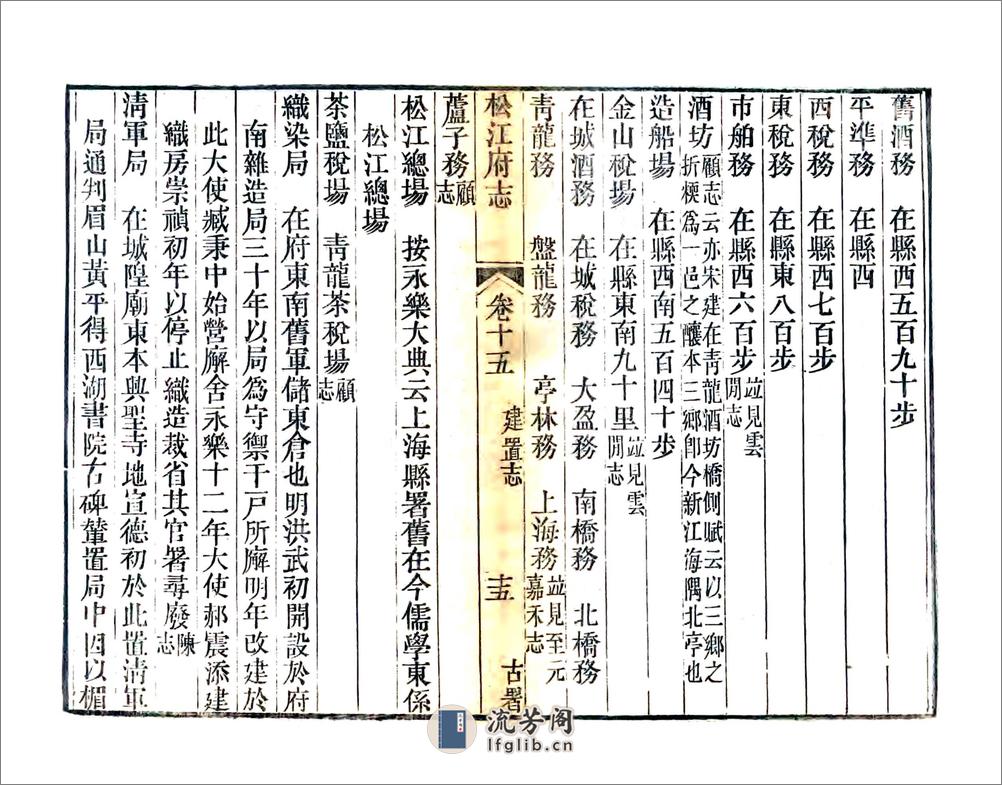 舊酒務　在縣西五百九十步
平準務　在縣西
西稅務　在縣西七百步
東稅務　在縣東八百步
市舶務　在縣西六百步竝見雲閒志
酒坊顧志云亦宋建在靑龍酒坊橋側賦云以三鄉之折楔爲一邑之釀本三鄉卽今新江海隅北亭也
造船場　在縣西南五百四十步
金山稅場　在縣東南九十里竝見雲閒志
在城酒務　在城稅務　大盈務　南橋務　北橋務
靑龍務　盤龍務　亭林務　上海務竝見至元嘉禾志
松江府志　卷十五　建置志　十五　古署
蘆子務顧志
松江總場　按永樂大典云上海縣署舊在今儒學東係
松江總場
茶鹽稅場　靑龍茶稅場顧志
織染局　在府東南舊軍儲東倉也明洪武初開設於府
南雜造局三十年以局爲守禦千戸所廨明年改建於
此大使臧秉中始營廨舍永樂十二年大使郝震添建
織房崇禎初年以停止織造裁省其官署尋廢陳志
淸軍局　在城隍廟東本興聖寺地宣德初於此置淸軍
局通判眉山黃平得西湖書院古碑輦置局中因以楣
流芳阁
lfglib.cn